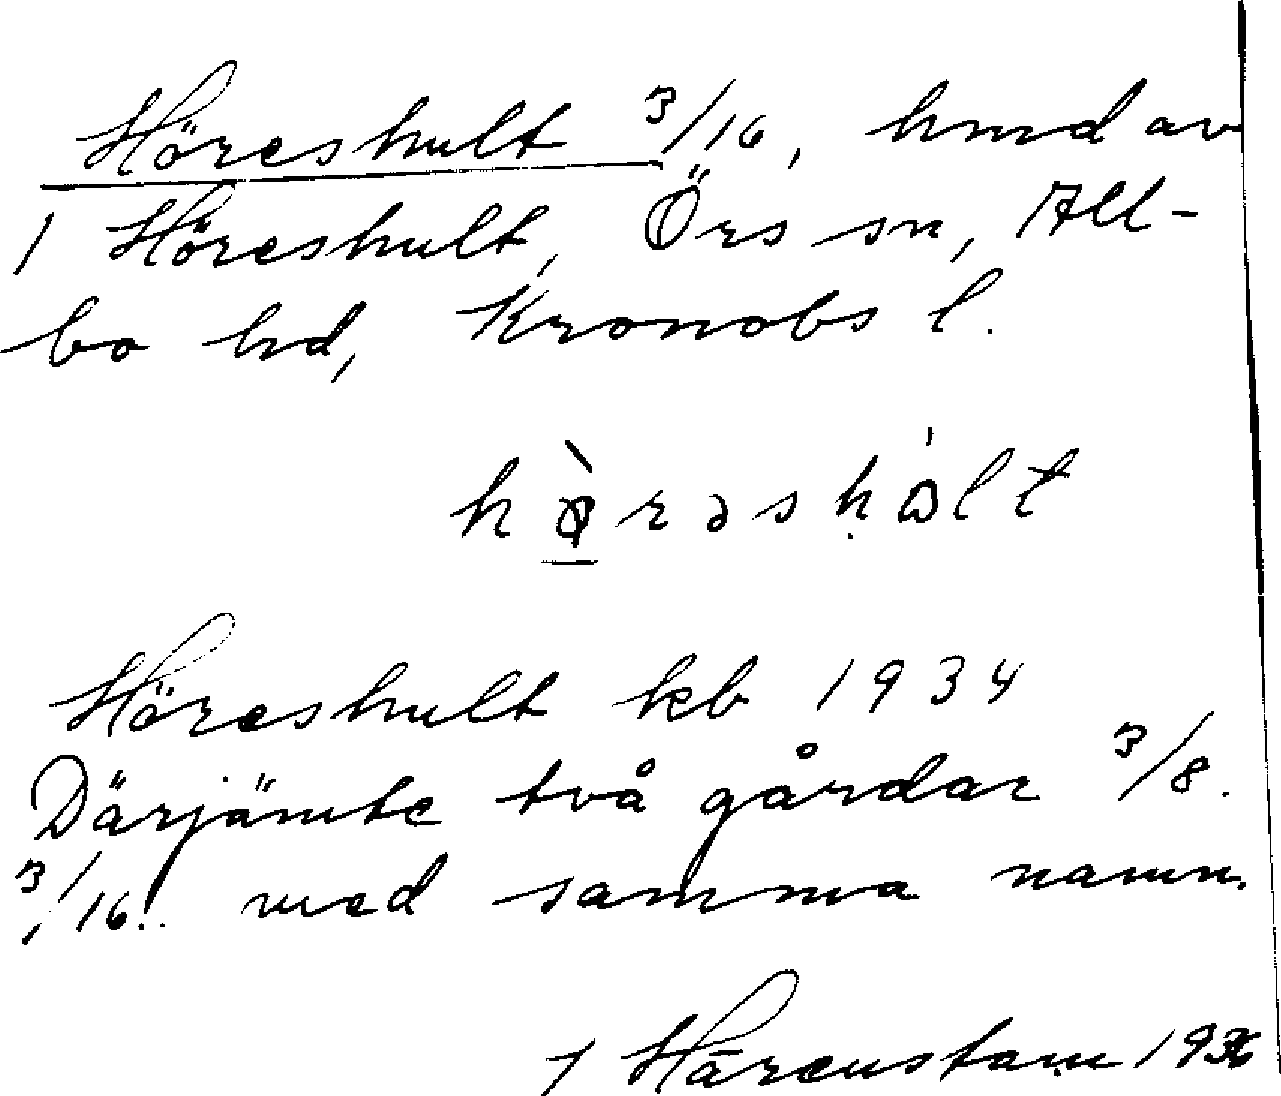 Höreshult 3/16, hmd av
1 Höreshult, Örs sn, All-
bo hd, Kronobs l.
hø̀rəshált
Höreshult kb 1934
Därjämte två gårdar 3/8.
3/16. med samma namn.
Härenstam 1936